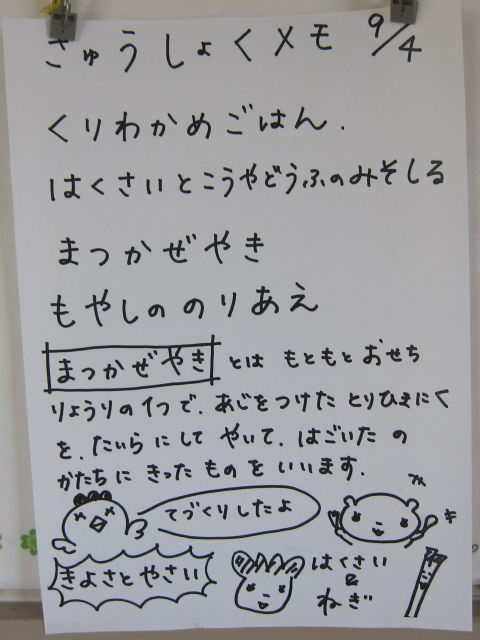 きゅうしょくメモ 9/4
くりわかめごはん.
はくさいとこうやどうふのみそしる
まつかぜやき
もやしののりあえ
まつかぜやき とは もともと おせち
りょうりの1つで、あじをつけた とりひきにく
を、たいらにして やいて、はごいたの
かたちに きったものを いいます.
てづくりしたよ
きよさとやさい
はくさい
&
ねぎ